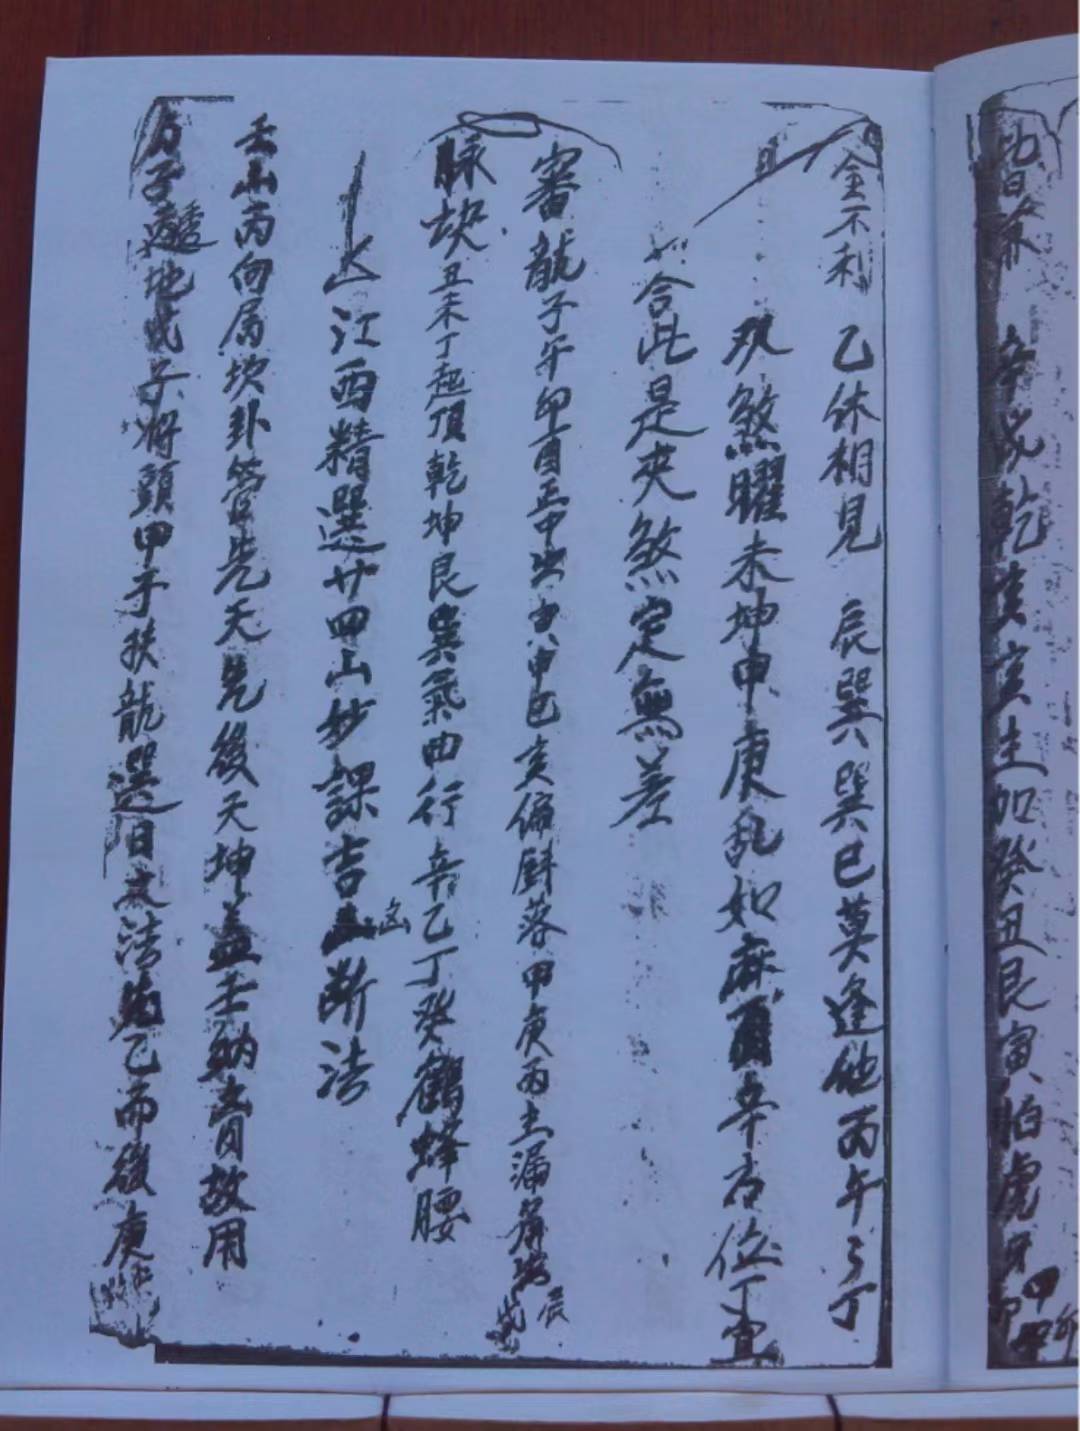 辛戌乾 亥生加癸丑艮寅怕虎
金不利 乙休相見 辰巽巽巳莫逢他丙午丁
双煞曜未坤申庚乱如麻酉辛右位丁宜
合此是夾煞定無差
審龍子午卯酉正中出寅申巳亥偏斜落甲庚丙壬漏 辰戌
脉块丑未丁起頂乾坤艮巽氣曲行辛乙丁癸鶴蜂腰
江西精選廿四山妙課吉凶断法
壬山丙向属坎卦管先天先後天坤盖壬納 故用
子透地戊子將頭甲子扶龍選日 法 乙而後庚